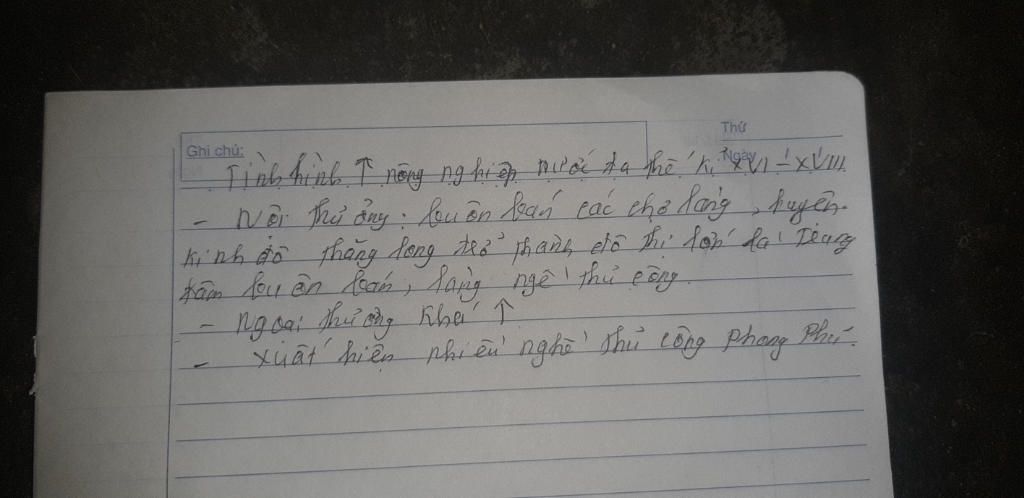 Thứ
Ghi chú: Ngày
Tình hình ↑ nông nghiệp nước ta thế kỉ XVI - XVIII
- Nội thương: buôn bán các chợ làng, huyện.
kinh đô thăng long trở thành đô thị lớn là trung
tâm buôn bán, làng nghề thủ công.
- Ngoại thương khá ↑
- xuất hiện nhiều nghề thủ công phong phú.